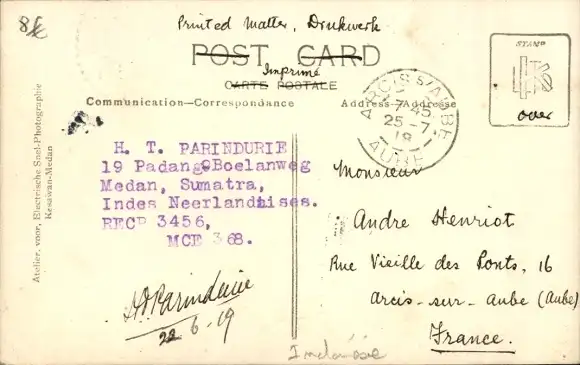 8f
Printed Matter, Drukwerk
POST CARD
Imprimé
CARTE POSTALE
Communication—Correspondance
Address—Adresse
STAMP
over
ARCIS S/AUBE
7 45
25 -7
19
AUBE
Atelier, voor, Electrische Snel-Photographie
Kesawan-Medan
H. T. PARINDURIE
19 Padang Boelanweg
Medan, Sumatra,
Indes Neerlandaises.
RECD 3456,
MCE 368.
HTParindurie
22-6-19
Monsieur
Andre Henriot
Rue Vieille des Ponts, 16
Arcis-sur-Aube (Aube)
France.
Indonésie